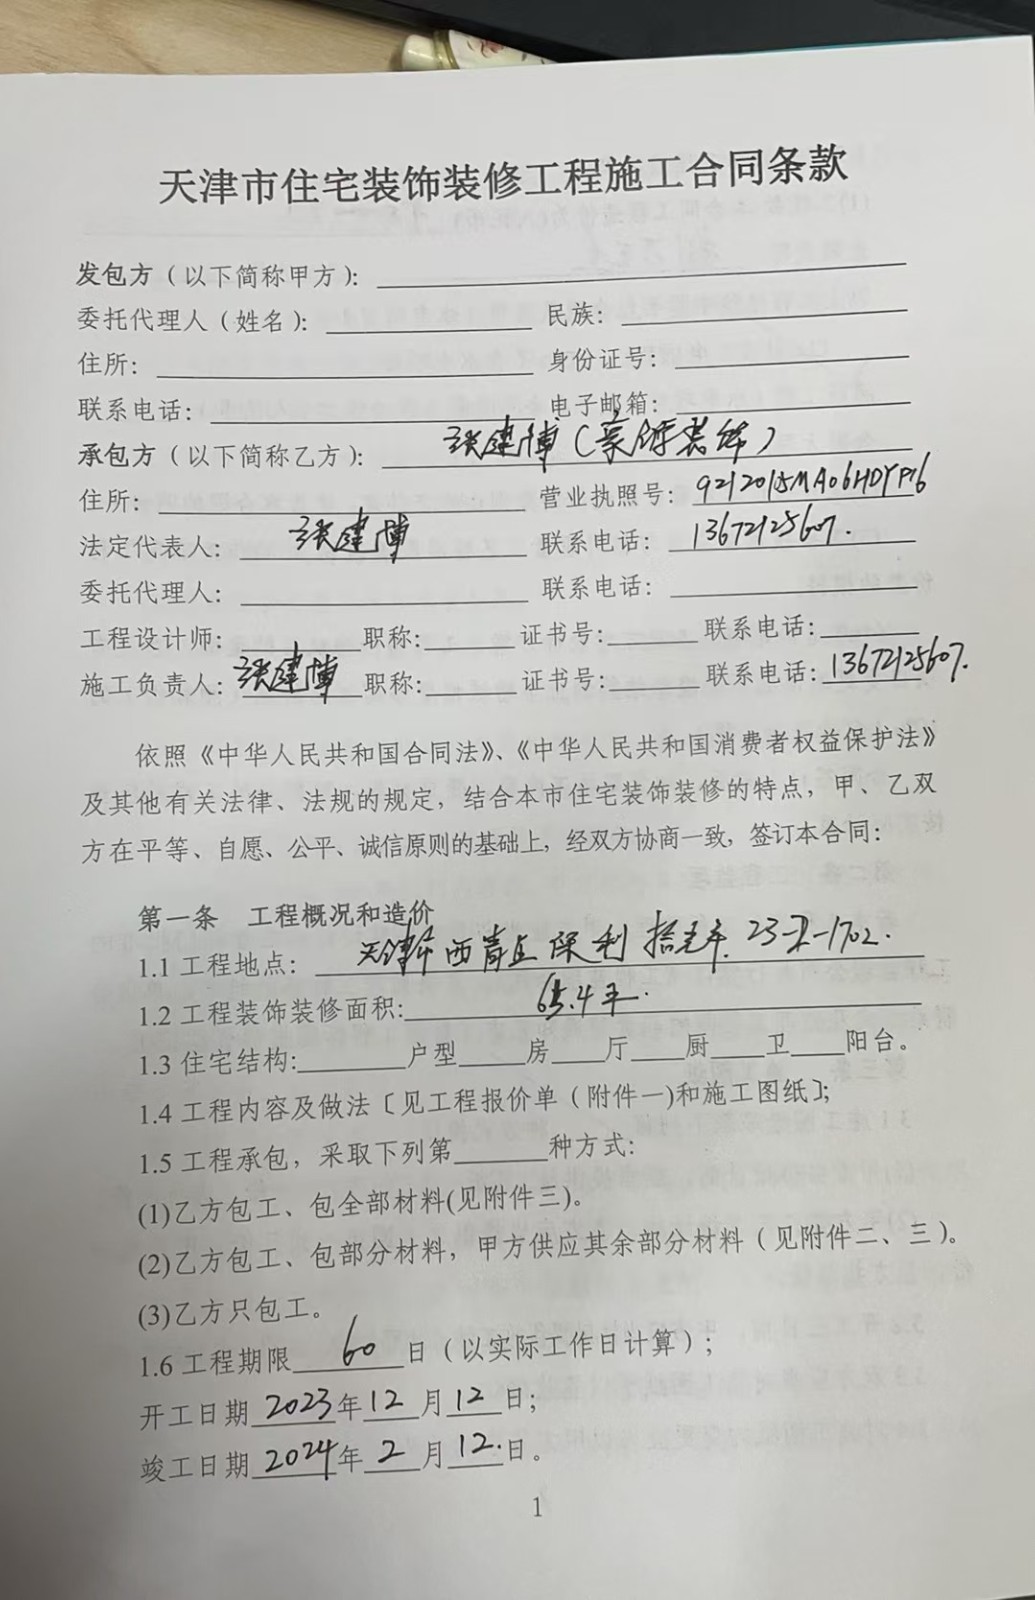 天津市住宅装饰装修工程施工合同条款
发包方（以下简称甲方）：
委托代理人（姓名）： 民族：
住所： 身份证号：
联系电话： 电子邮箱：
承包方（以下简称乙方）： 张建博（装饰）
住所： 营业执照号：
法定代表人： 张建博 联系电话： 13672125607.
委托代理人： 联系电话：
工程设计师： 职称： 证书号： 联系电话：
施工负责人： 张建博 职称： 证书号： 联系电话： 13672125607.
依照《中华人民共和国合同法》、《中华人民共和国消费者权益保护法》
及其他有关法律、法规的规定，结合本市住宅装饰装修的特点，甲、乙双
方在平等、自愿、公平、诚信原则的基础上，经双方协商一致，签订本合同：
第一条 工程概况和造价
1.1 工程地点： 天津市西青区保利拾光年 23-2-1702.
1.2 工程装饰装修面积： 65.4平.
1.3 住宅结构： 户型 房 厅 厨 卫 阳台。
1.4 工程内容及做法〔见工程报价单（附件一)和施工图纸〕；
1.5 工程承包，采取下列第 种方式：
(1)乙方包工、包全部材料(见附件三)。
(2)乙方包工、包部分材料，甲方供应其余部分材料（见附件二、三）。
(3)乙方只包工。
1.6 工程期限 60 日（以实际工作日计算）；
开工日期 2023 年 12 月 12 日；
竣工日期 2024 年 2 月 12. 日。
1